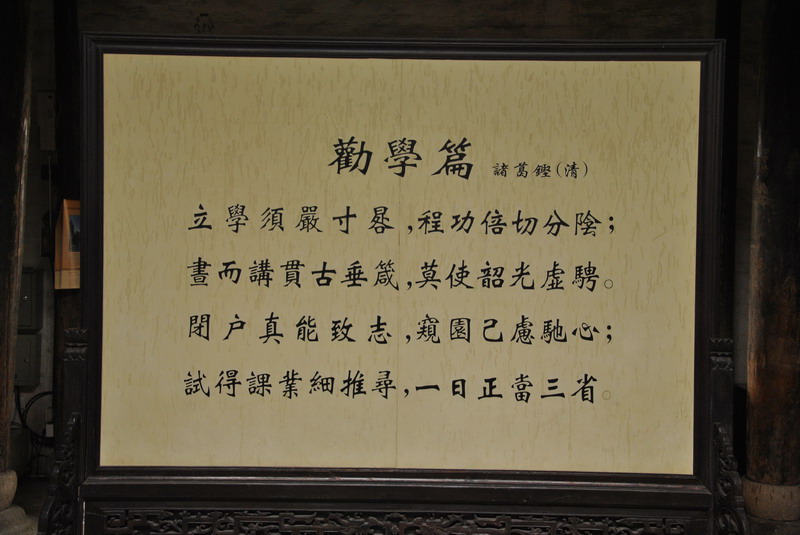 勸學篇 諸葛鏗(清)
立學須嚴寸晷,程功倍切分陰;
晝而講貫古垂箴,莫使韶光虛騁。
閉户真能致志,窺園已慮馳心;
試得課業細推尋,一日正當三省。